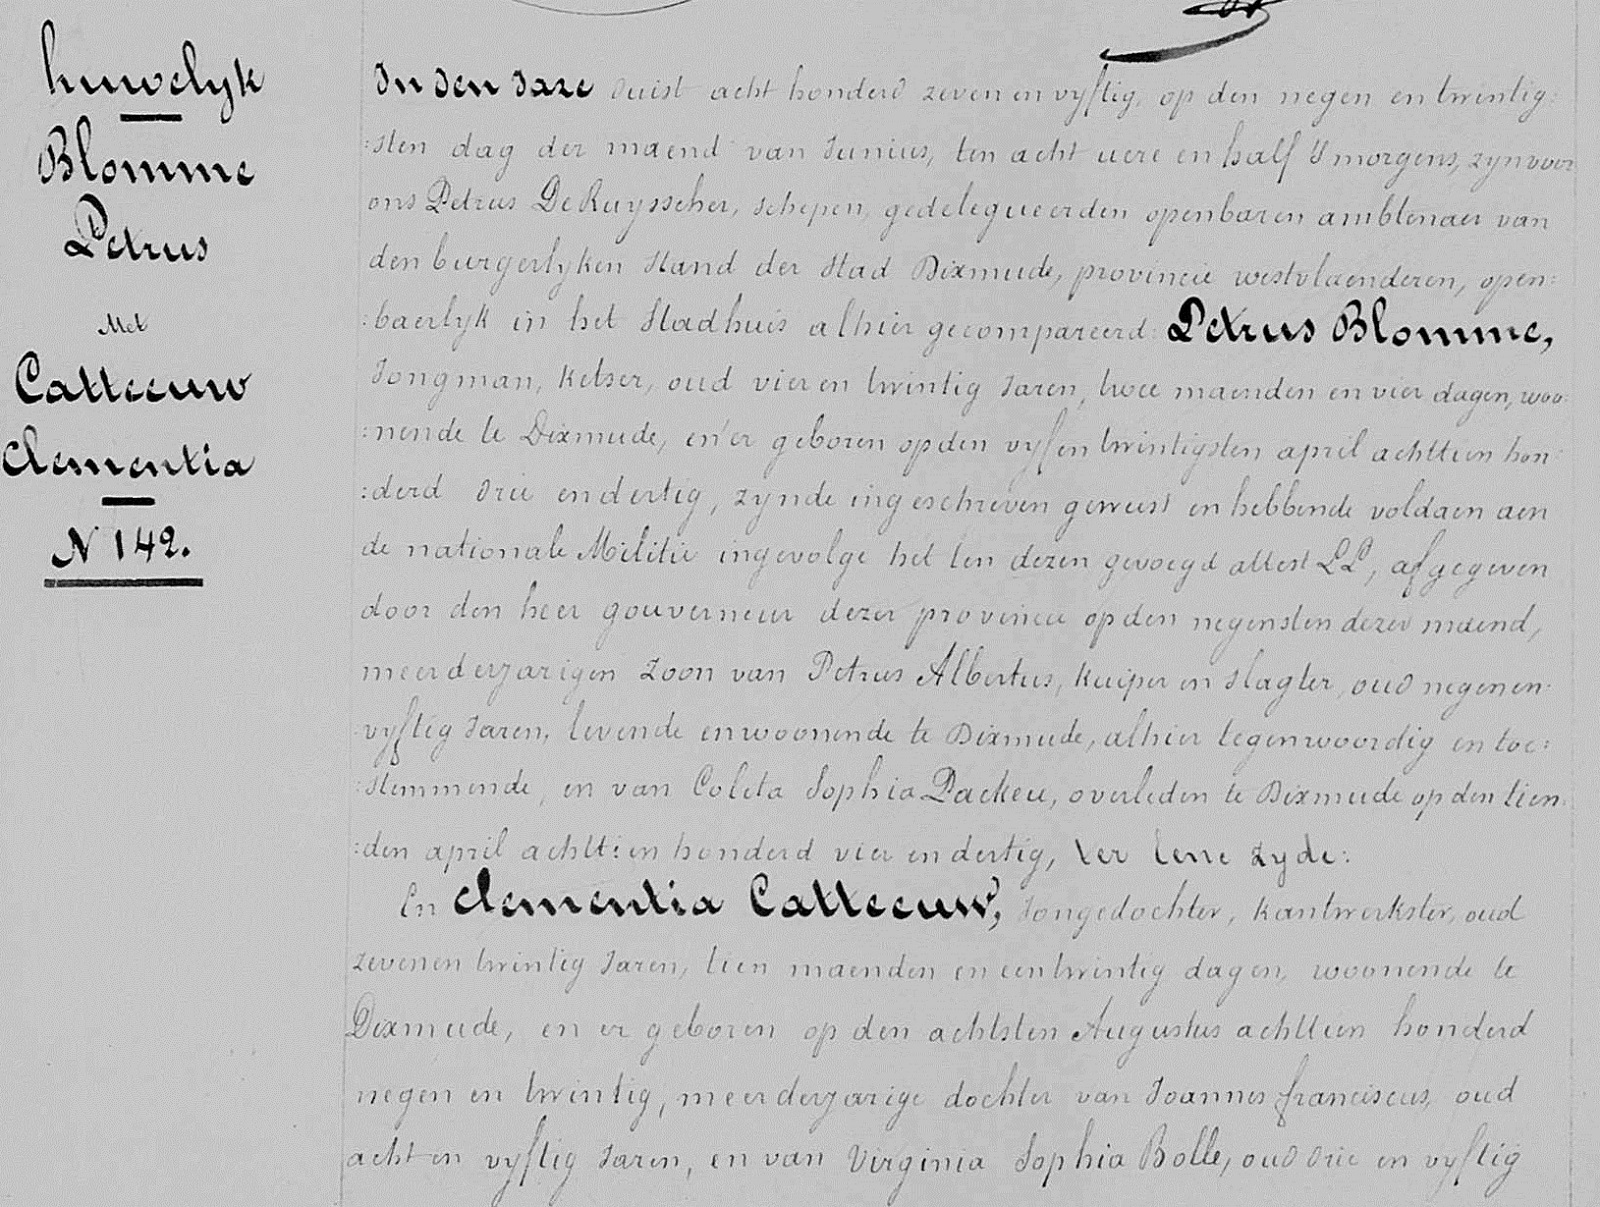 huwelyk
Blomme
Petrus
Met
Catteeuw
Clementia
N 142.
In den Jare duist acht honderd zeven en vyftig, op den negen en twintig:
:sten dag der maend van Junius, ten acht uere en half 's morgens, zyn voor
ons Petrus De Ruysscher, schepen, gedelegueerden openbaren ambtenaer van
den burgerlyken Stand der Stad Dixmude, provincie westvlaenderen, open:
:baerlyk in het Stadhuis alhier gecompareerd: Petrus Blomme,
Jongman, ketser, oud vier en twintig Jaren, twee maenden en vier dagen, woo:
:nende te Dixmude, en er geboren op den vyf en twintigsten april achttien hon:
:derd drie en dertig, zynde ingeschreven geweest en hebbende voldaen aen
de nationale Militie ingevolge het ten dezen gevoegd attest LL, afgegeven
door den heer gouverneur dezer provincie op den negensten dezer maend,
meerderjarigen zoon van Petrus Albertus, kuiper en slagter, oud negen en:
vyftig Jaren, levende en woonende te Dixmude, alhier tegenwoordig en toe:
:stemmende, en van Coleta Sophia Packeu, overleden te Dixmude op den tien:
:den april achttien honderd vier en dertig, ter eene zyde:
En Clementia Catteeuw, Jongedochter, kantwerkster, oud
zeven en twintig Jaren, tien maenden en een twintig dagen, woonende te
Dixmude, en er geboren op den achtsten Augustus achttien honderd
negen en twintig, meerderjarige dochter van Joannes franciscus, oud
acht en vyftig Jaren, en van Virginia Sophia Bolle, oud drie en vyftig